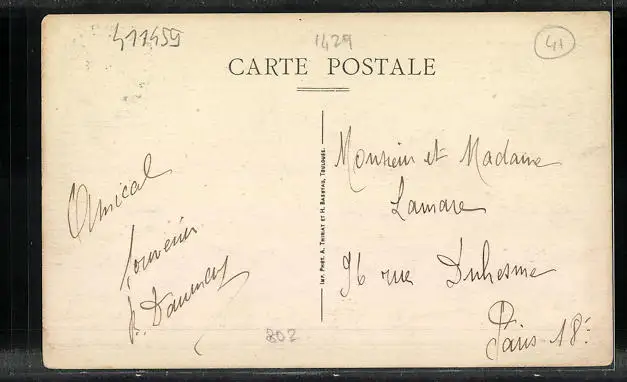 411459
1429
41
CARTE POSTALE
Amical
souvenir
Monsieur et Madame
Lamare
96 rue Duhesme
Paris 18e
Imp. Phot. A. Thiriat et H. Basuyau, Toulouse.
802